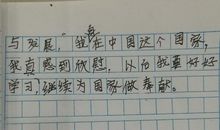 与发展，我在中国这个国家，
我真感到欣慰，以后我要好好
学习，继续为国家做奉献。